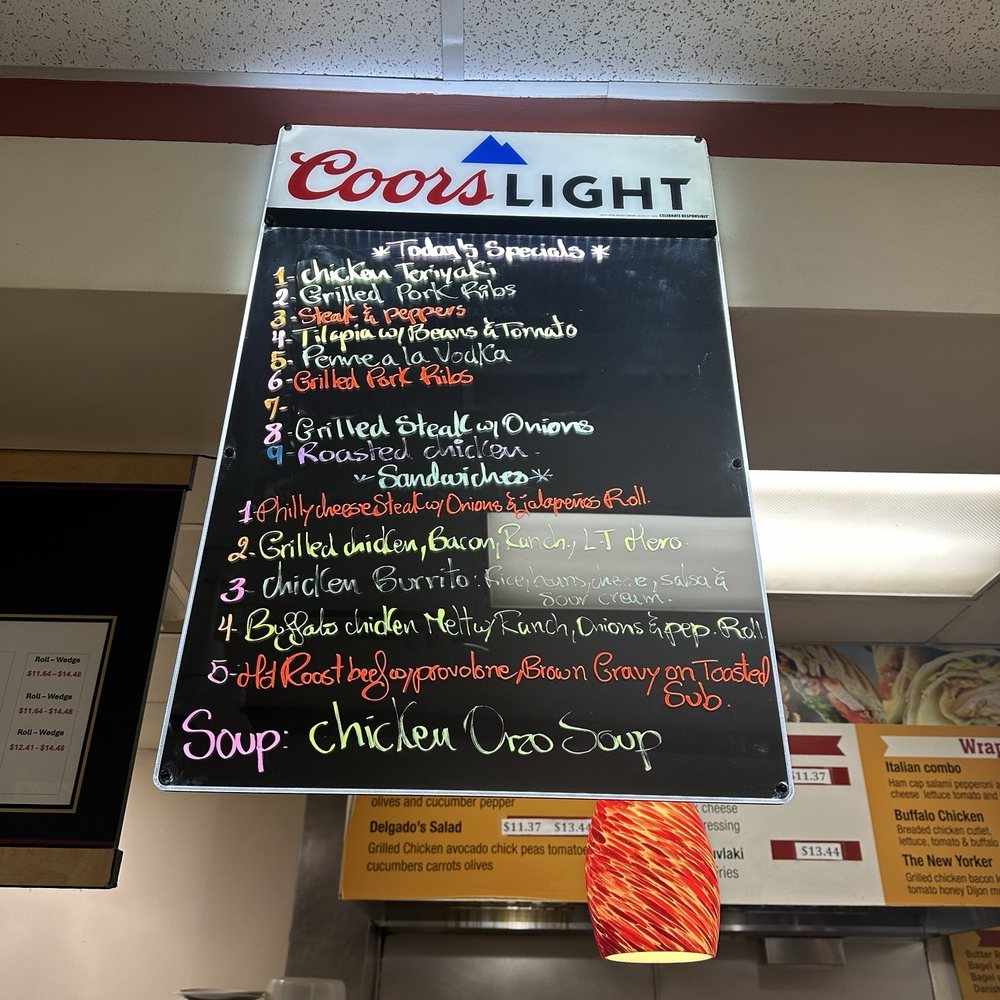 Coors LIGHT
CELEBRATE RESPONSIBLY
*Today's Specials*
1- Chicken Teriyaki
2- Grilled Pork Ribs
3- Steak & peppers
4- Tilapia w/ Beans & Tomato
5- Penne a la Vodka
6- Grilled Pork Ribs
7-
8- Grilled Steak w/ Onions
9- Roasted chicken-
-Sandwiches*
1- Philly cheese Steak w/ Onions & jalapeños Roll.
2- Grilled chicken, Bacon, Ranch, LT Hero.
3- chicken Burrito: Rice, , salsa &
Sour cream.
4- Buffalo chicken Melt w/ Ranch, Onions & pep. Roll.
5- Hot Roast beef w/ provolone, Brown Gravy on Toasted
Sub.
Soup: chicken Orzo Soup
Roll – Wedge
$11.64 - $14.48
Roll – Wedge
$11.64 - $14.48
Roll – Wedge
$12.41 - $14.48
olives and cucumber pepper
Delgado's Salad $11.37 $13.44
Grilled Chicken avocado chick peas tomatoe
cucumbers carrots olives
$11.37
cheese
ressing
uvlaki $13.44
Fries
Wrap
Italian combo
Ham cap salami pepperoni
cheese lettuce tomato and
Buffalo Chicken
Breaded chicken cutlet,
lettuce, tomato & buffalo
The New Yorker
Grilled chicken bacon
tomato honey Dijon m
Butter R
Bagel
Bagel
Danis